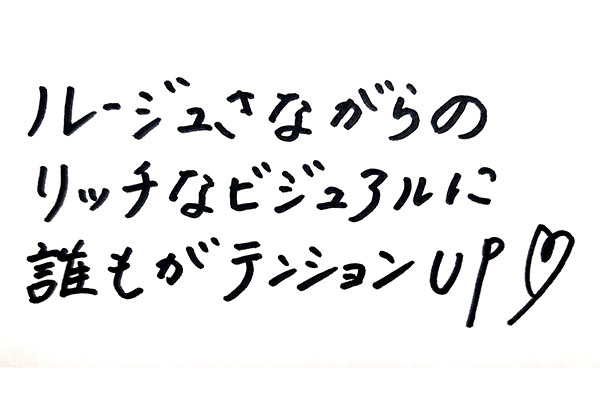 ルージュさながらの
リッチなビジュアルに
誰もがテンションUP♡